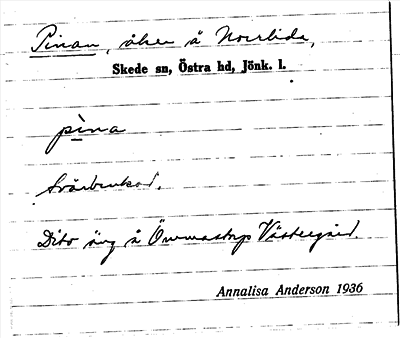 Pinan, åker å Norrlida,
Skede sn, Östra hd, Jönk. l.
pìna
Svårbrukad.
Dito äng å Ömmastorp Västergård.
Annalisa Anderson 1936